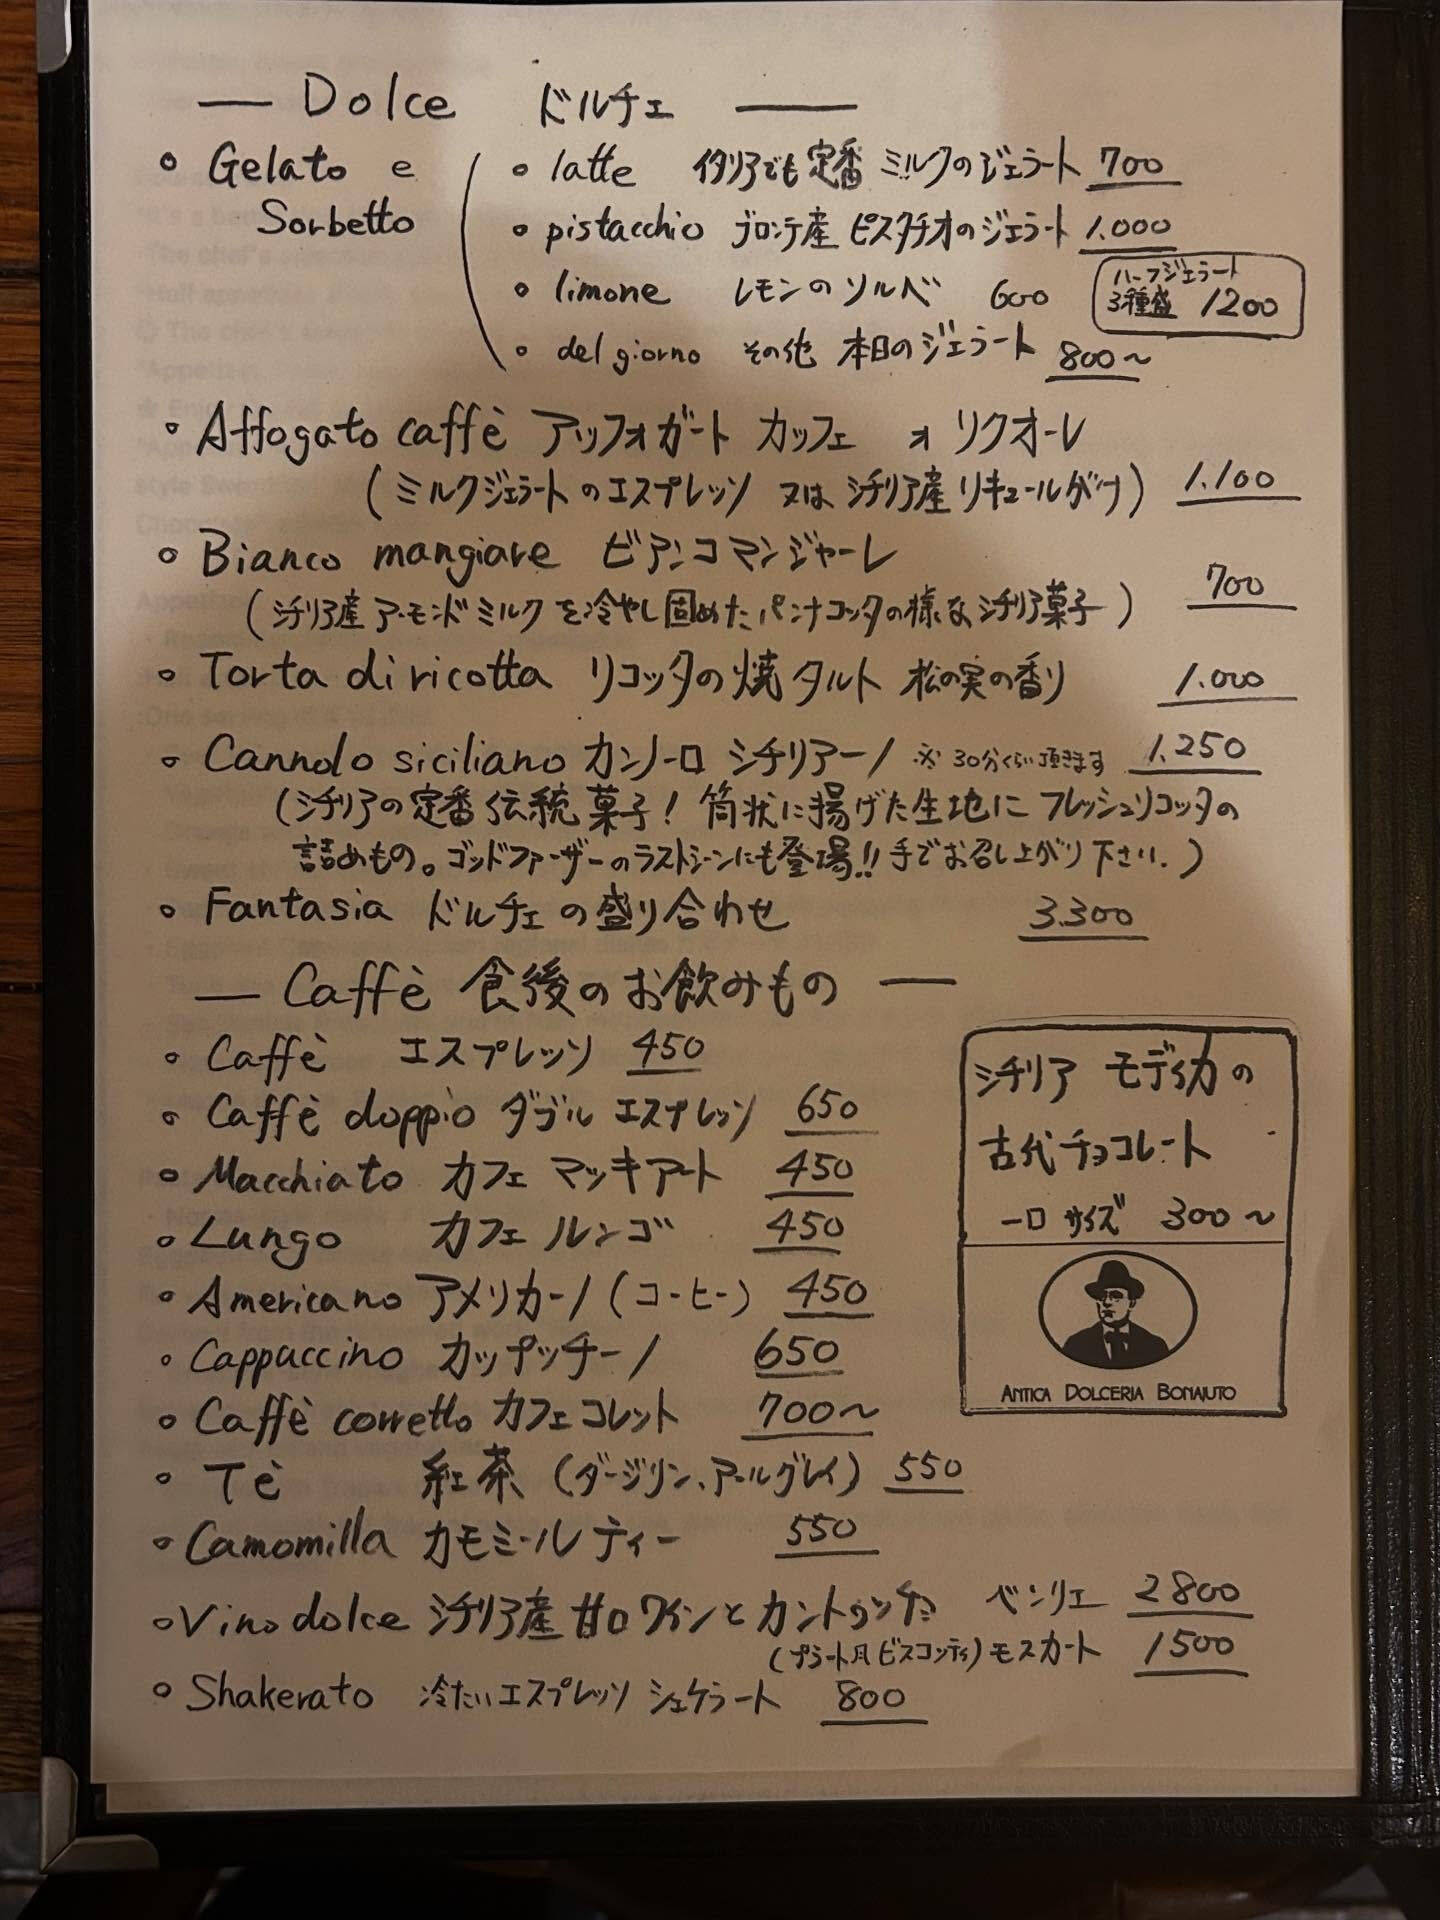 — Dolce ドルチェ —
◦ Gelato e Sorbetto
◦ latte イタリアでも定番 ミルクのジェラート 700
◦ pistacchio ブロンテ産 ピスタチオのジェラート 1.000
◦ limone レモンのソルベ 600
ハーフジェラート
3種盛 1200
◦ del giorno その他 本日のジェラート 800〜
◦ Affogato caffè アッフォガート カッフェ オ リクオーレ
(ミルクジェラートのエスプレッソ 又は シチリア産リキュールがけ) 1.100
◦ Bianco mangiare ビアンコマンジャーレ
(シチリア産アーモンドミルクを冷やし固めたパンナコッタの様なシチリア菓子) 700
◦ Torta di ricotta リコッタの焼タルト 松の実の香り 1.000
◦ Cannolo siciliano カンノーロ シチリアーノ ※30分くらい頂きます 1.250
(シチリアの定番伝統菓子! 筒状に揚げた生地にフレッシュリコッタの
詰めもの。ゴッドファーザーのラストシーンにも登場!! 手でお召し上がり下さい.)
◦ Fantasia ドルチェの盛り合わせ 3.300
— Caffè 食後のお飲みもの —
◦ Caffè エスプレッソ 450
◦ Caffè doppio ダブル エスプレッソ 650
◦ Macchiato カフェ マッキアート 450
◦ Lungo カフェ ルンゴ 450
◦ Americano アメリカーノ (コーヒー) 450
◦ Cappuccino カップッチーノ 650
◦ Caffè corretto カフェコレット 700〜
◦ Tè 紅茶 (ダージリン、アールグレイ) 550
◦ Camomilla カモミールティー 550
◦ Vino dolce シチリア産甘口ワインとカントゥッチョ ベンリエ 2800
(プラート風ビスコッティ) モスカート 1500
◦ Shakerato 冷たいエスプレッソ シェケラート 800
シチリア モディカの
古代チョコレート
一口サイズ 300〜
ANTICA DOLCERIA BONAJUTO